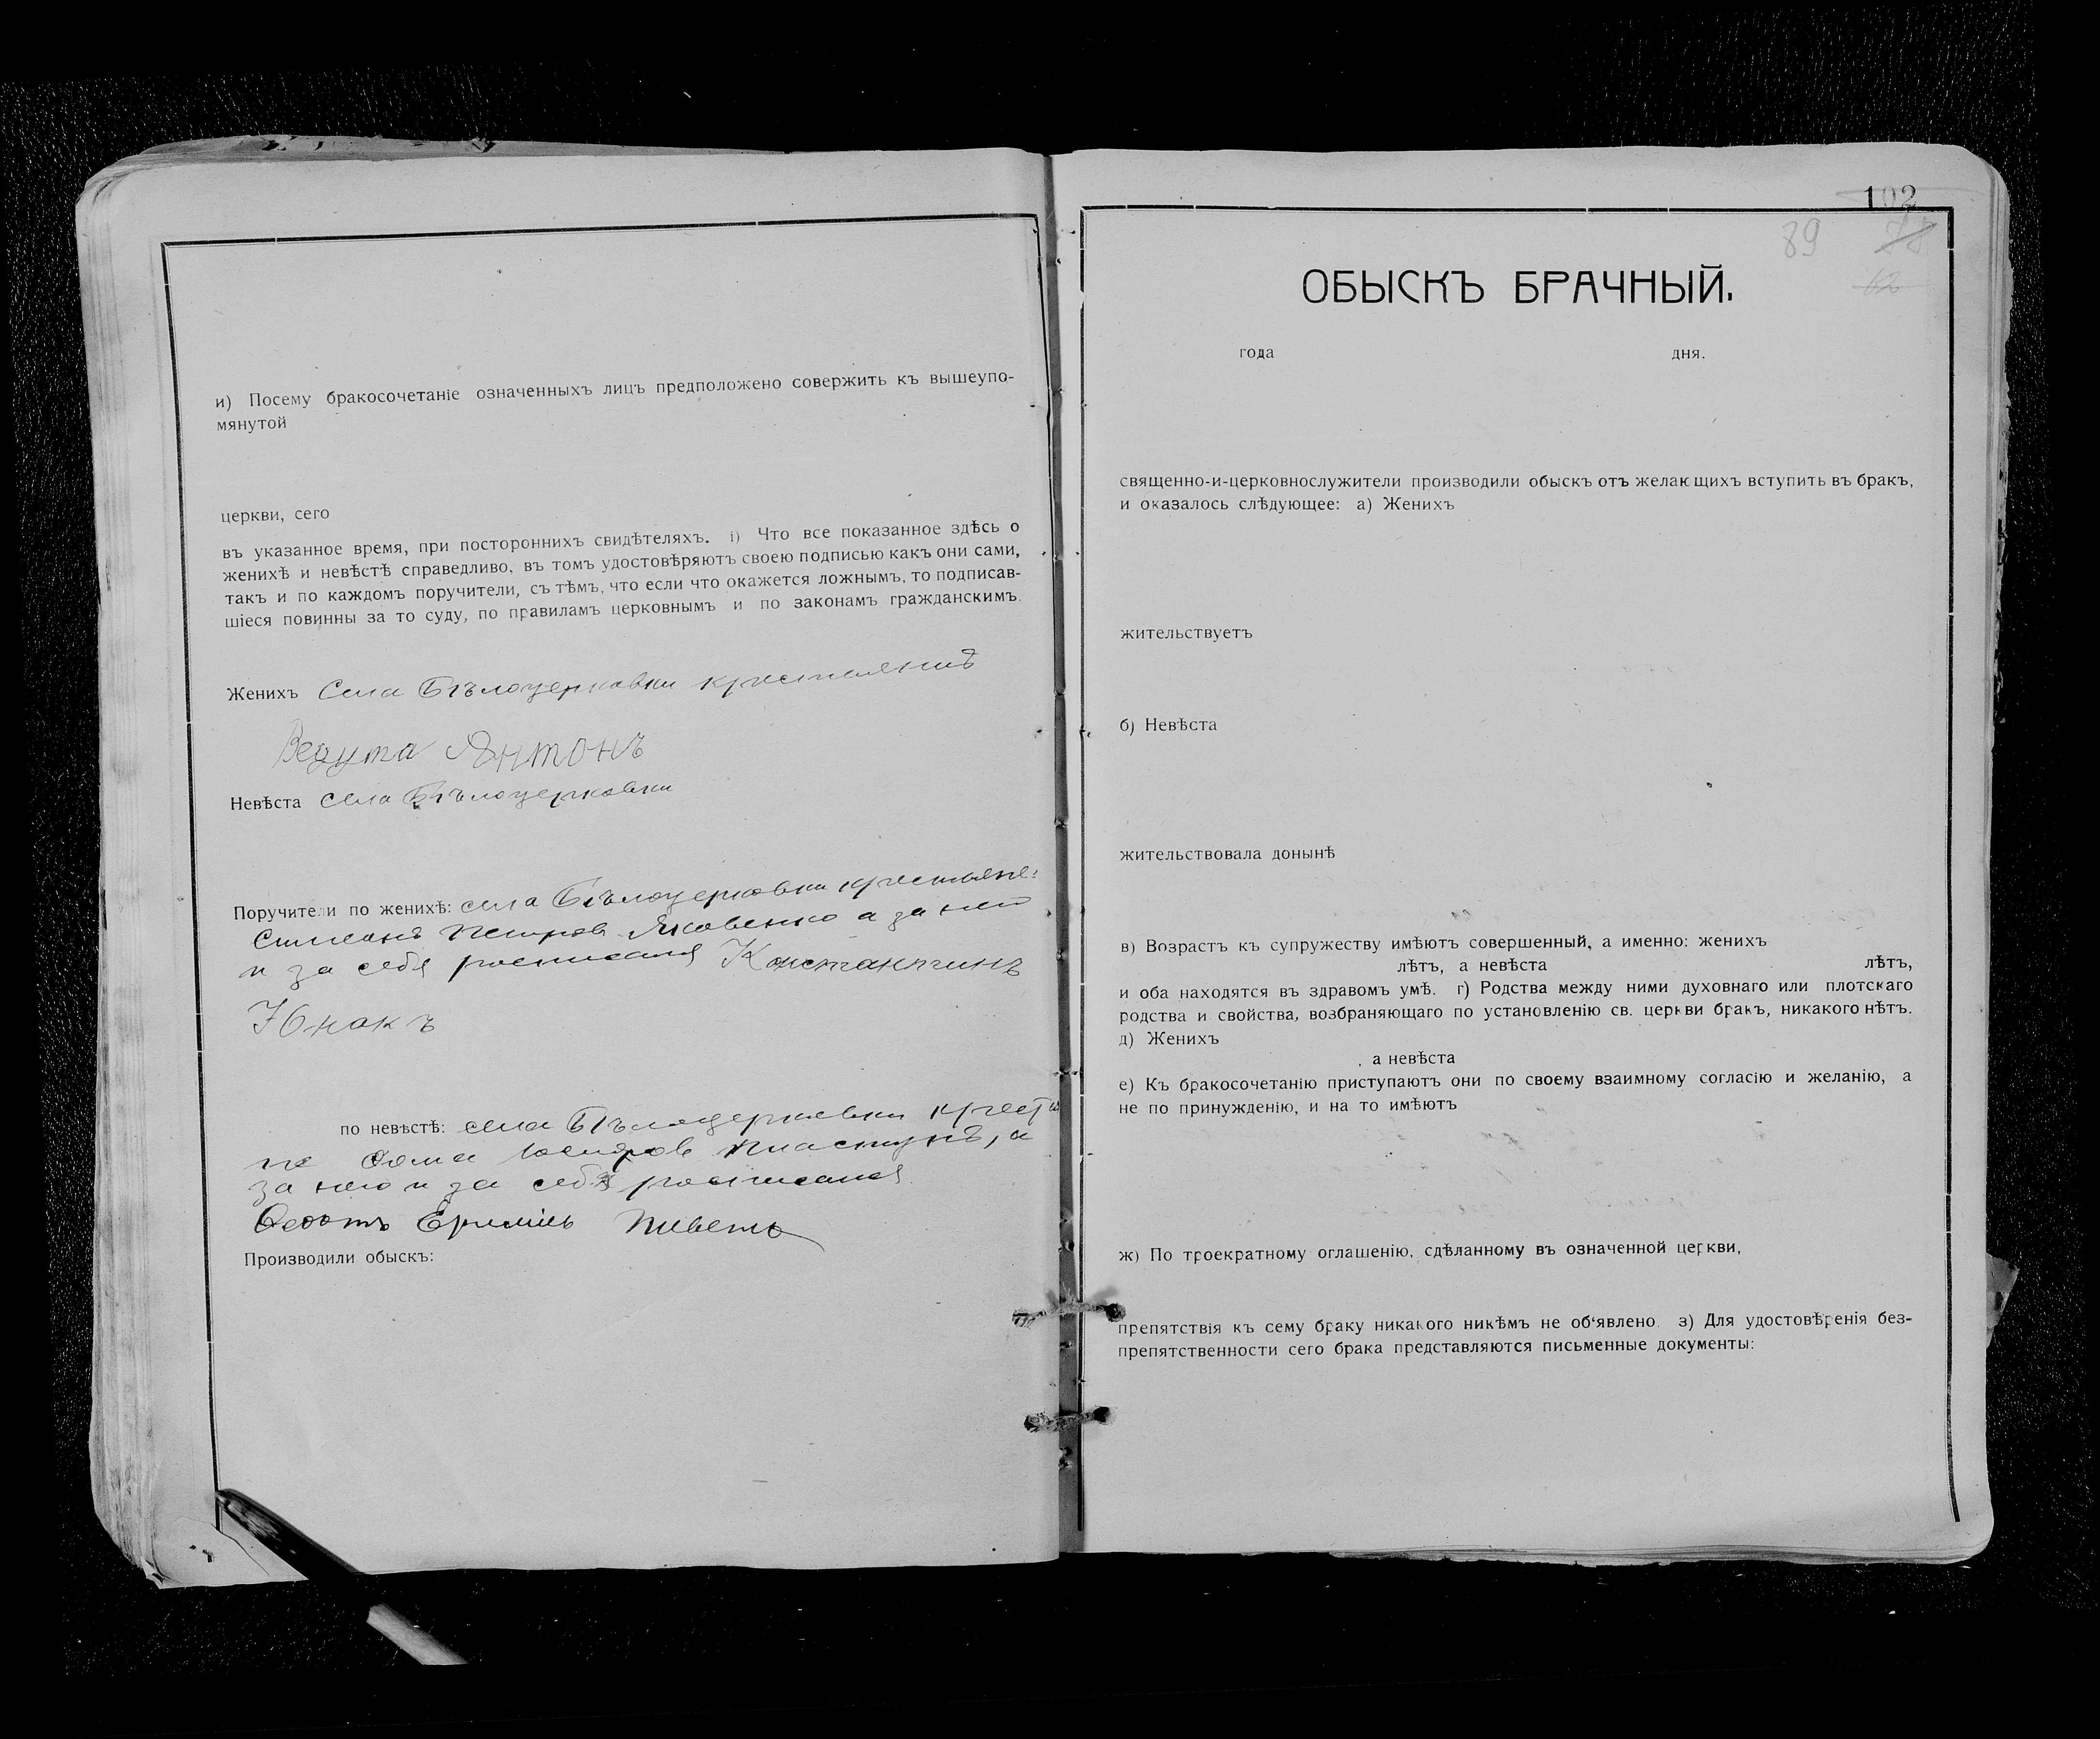 и) Посему бракосочетаніе означенныхъ лицъ предположено совержить къ вышеупо-
мянутой
церкви, сего
въ указанное время, при постороннихъ свидѣтеляхъ. і) Что все показанное здѣсь о
женихѣ и невѣстѣ справедливо, въ томъ удостовѣряютъ своею подписью какъ они сами,
такъ и по каждомъ поручители, съ тѣмъ, что если что окажется ложнымъ, то подписав-
шіеся повинны за то суду, по правиламъ церковнымъ и по законамъ гражданскимъ.
Женихъ Села Бѣлоцерковки крестьянинъ
Ведута Антонъ
Невѣста села Бѣлоцерковки
Поручители по женихѣ: села Бѣлоцерковки крестьяне:
Симеонъ Петров Яковенко а за него
и за себя росписался Константинъ
Юнакъ
по невѣстѣ: села Бѣлоцерковки крестья
не Ѳома Пластунъ, а
за него и за себя росписался
Ѳедотъ Пивень
Производили обыскъ:
102
89 78
62
ОБЫСКЪ БРАЧНЫЙ.
года дня.
священно-и-церковнослужители производили обыскъ отъ желающихъ вступить въ бракъ,
и оказалось слѣдующее: а) Женихъ
жительствуетъ
б) Невѣста
жительствовала донынѣ
в) Возрастъ къ супружеству имѣютъ совершенный, а именно: женихъ
лѣтъ, а невѣста лѣтъ,
и оба находятся въ здравомъ умѣ. г) Родства между ними духовнаго или плотскаго
родства и свойства, возбраняющаго по установленію св. церкви бракъ, никакого нѣтъ.
д) Женихъ
, а невѣста
е) Къ бракосочетанію приступаютъ они по своему взаимному согласію и желанію, а
не по принужденію, и на то имѣютъ
ж) По троекратному оглашенію, сдѣланному въ означенной церкви,
препятствія къ сему браку никакого никѣмъ не об‘явлено. з) Для удостовѣренія без-
препятственности сего брака представляются письменные документы: